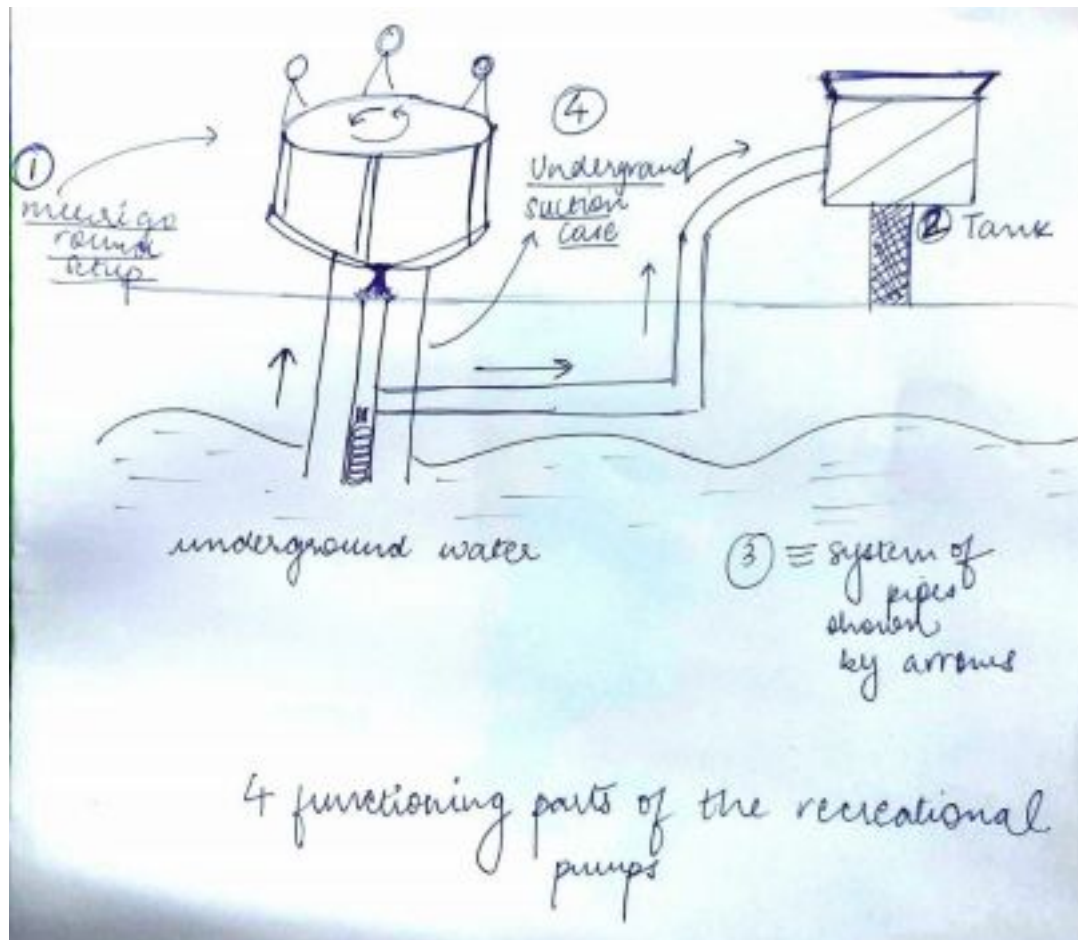 ①
merrigo
round
setup
④
Undergraund
suction
case
② Tank
underground water
③ ≡ system of
pipes
shown
by arrows
4 functioning parts of the recreational
pumps